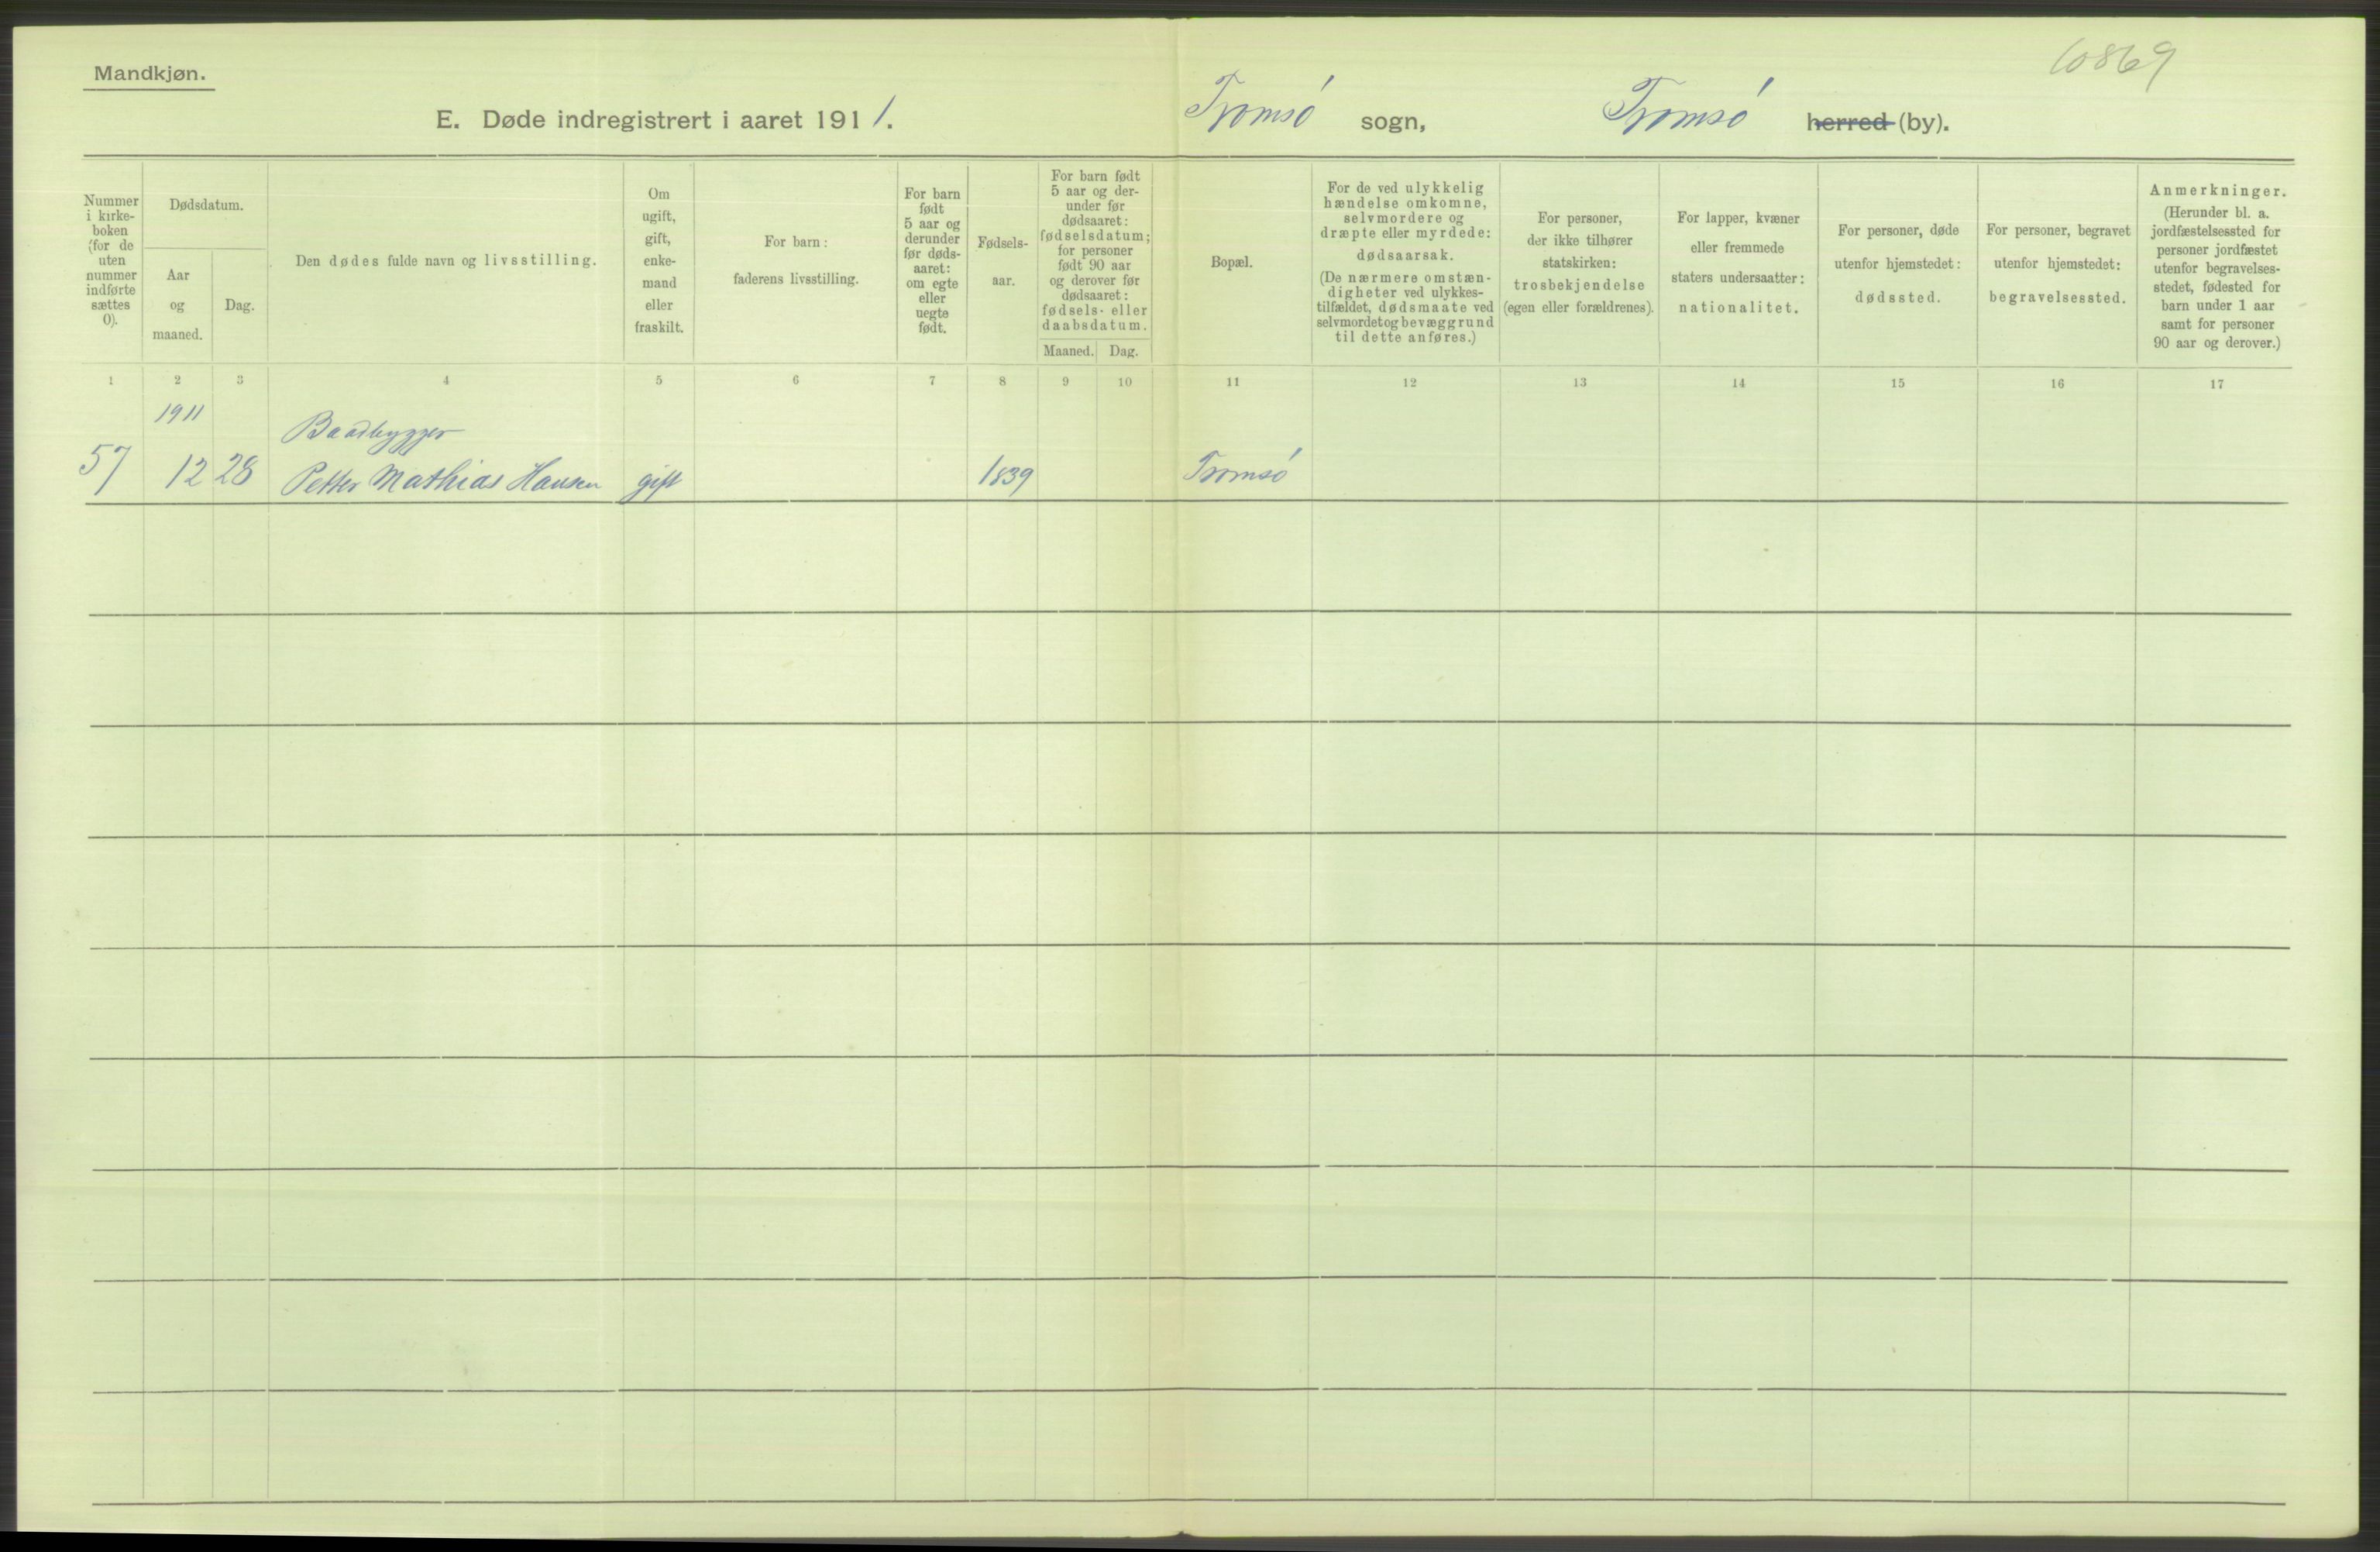 Mandkjøn.
10869
E. Døde indregistrert i aaret 1911.
Tromsö sogn, Tromsö herred (by).
Nummer
i kirke-
boken
(for de
uten
nummer
indførte
sættes
0).
Dødsdatum.
Aar
og
maaned.
Dag.
Den dødes fulde navn og livsstilling.
Om
ugift,
gift,
enke-
mand
eller
fraskilt.
For barn:
faderens livsstilling.
For barn
født
5 aar og
derunder
før døds-
aaret:
om egte
eller
uegte
født.
Fødsels-
aar.
For barn født
5 aar og der-
under før
dødsaaret:
fødselsdatum;
for personer
født 90 aar
og derover før
dødsaaret:
fødsels- eller
daabsdatum.
Maaned.
Dag.
Bopæl.
For de ved ulykkelig
hændelse omkomne,
selvmordere og
dræpte eller myrdede:
dødsaarsak.
(De nærmere omstæn-
digheter ved ulykkes-
tilfældet, dødsmaate ved
selvmordet og bevæggrund
til dette anføres.)
For personer,
der ikke tilhører
statskirken:
trosbekjendelse
(egen eller forældrenes).
For lapper, kvæner
eller fremmede
staters undersaatter:
nationalitet.
For personer, døde
utenfor hjemstedet:
dødssted.
For personer, begravet
utenfor hjemstedet:
begravelsessted.
Anmerkninger.
(Herunder bl. a.
jordfæstelsessted for
personer jordfæstet
utenfor begravelses-
stedet, fødested for
barn under 1 aar
samt for personer
90 aar og derover.)
1 2 3 4 5 6 7 8 9 10 11 12 13 14 15 16 17
1911
Baadbygger
57 12 28 Petter Mathias Hansen gift 1839 Tromsö